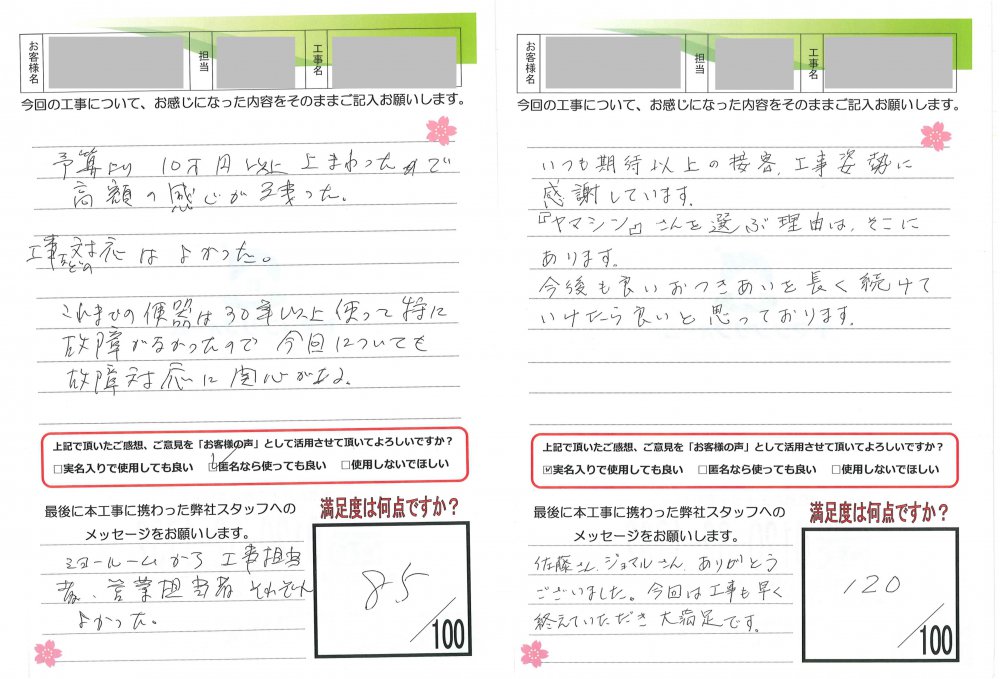 お客様名
担当
工事名
今回の工事について、お感じになった内容をそのままご記入お願いします。
予算より 10万円以上上まわったので
高額の感じが残った。
工事などの対応は よかった。
これまでの便器は30年以上使って特に
故障がなかったので 今回についても
故障対応に関心がある。
上記で頂いたご感想、ご意見を「お客様の声」として活用させて頂いてよろしいですか？
□実名入りで使用しても良い ☑匿名なら使っても良い □使用しないでほしい
最後に本工事に携わった弊社スタッフへの
メッセージをお願いします。
ショールームから工事担当
者、営業担当者 それぞれ
よかった。
満足度は何点ですか？
85
/100
お客様名
担当
工事名
今回の工事について、お感じになった内容をそのままご記入お願いします。
いつも期待以上の接客、工事姿勢に
感謝しています。
『ヤマシン』さんを選ぶ理由は、そこに
あります。
今後も良いおつきあいを長く続けて
いけたら良いと思っております。
上記で頂いたご感想、ご意見を「お客様の声」として活用させて頂いてよろしいですか？
☑実名入りで使用しても良い □匿名なら使っても良い □使用しないでほしい
最後に本工事に携わった弊社スタッフへの
メッセージをお願いします。
佐藤さん、ジョマルさん、ありがとう
ございました。今回は工事も早く
終えていただき大満足です。
満足度は何点ですか？
120
/100